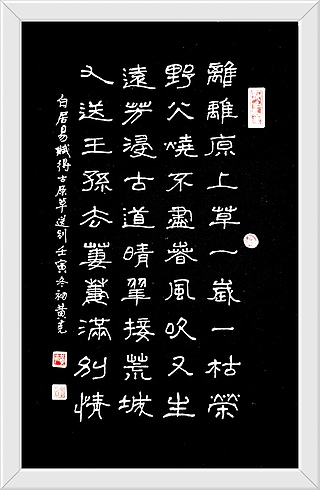 離離原上草一歲一枯榮
野火燒不盡春風吹又生
遠芳浸古道晴翠接荒城
又送王孫去萋萋滿別情
白居易賦得古原草送別壬寅冬初黃